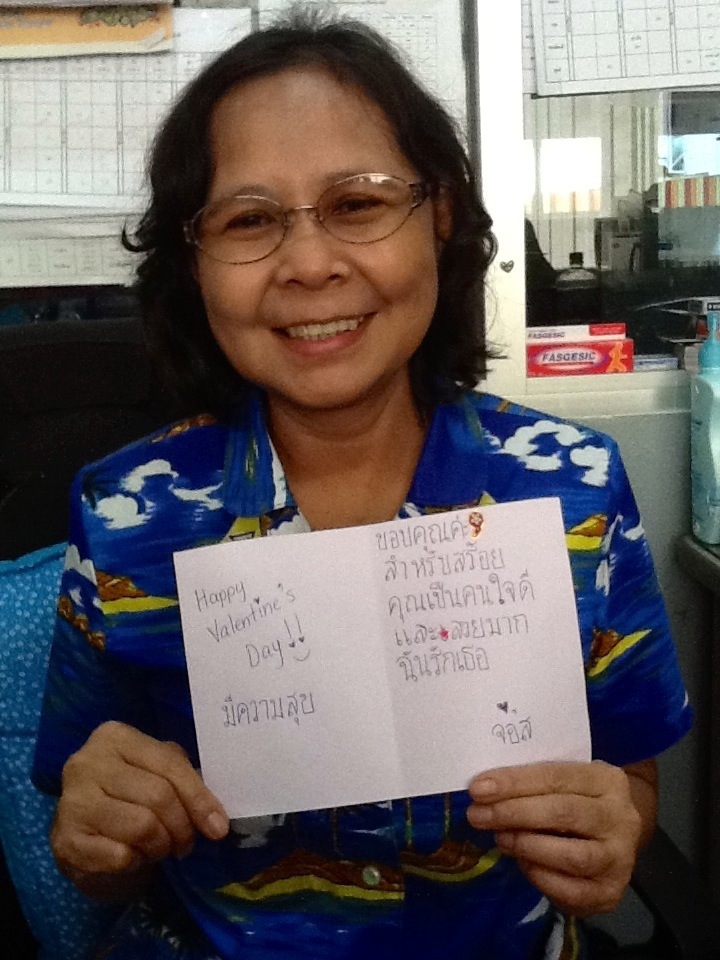 Happy
Valentine's
Day!!
มีความสุข
ขอบคุณค่
สำหรับสร้อย
คุณเป็นคนใจดี
และสวยมาก
ฉันรักเธอ
จอส
FASGESIC
FASGESIC